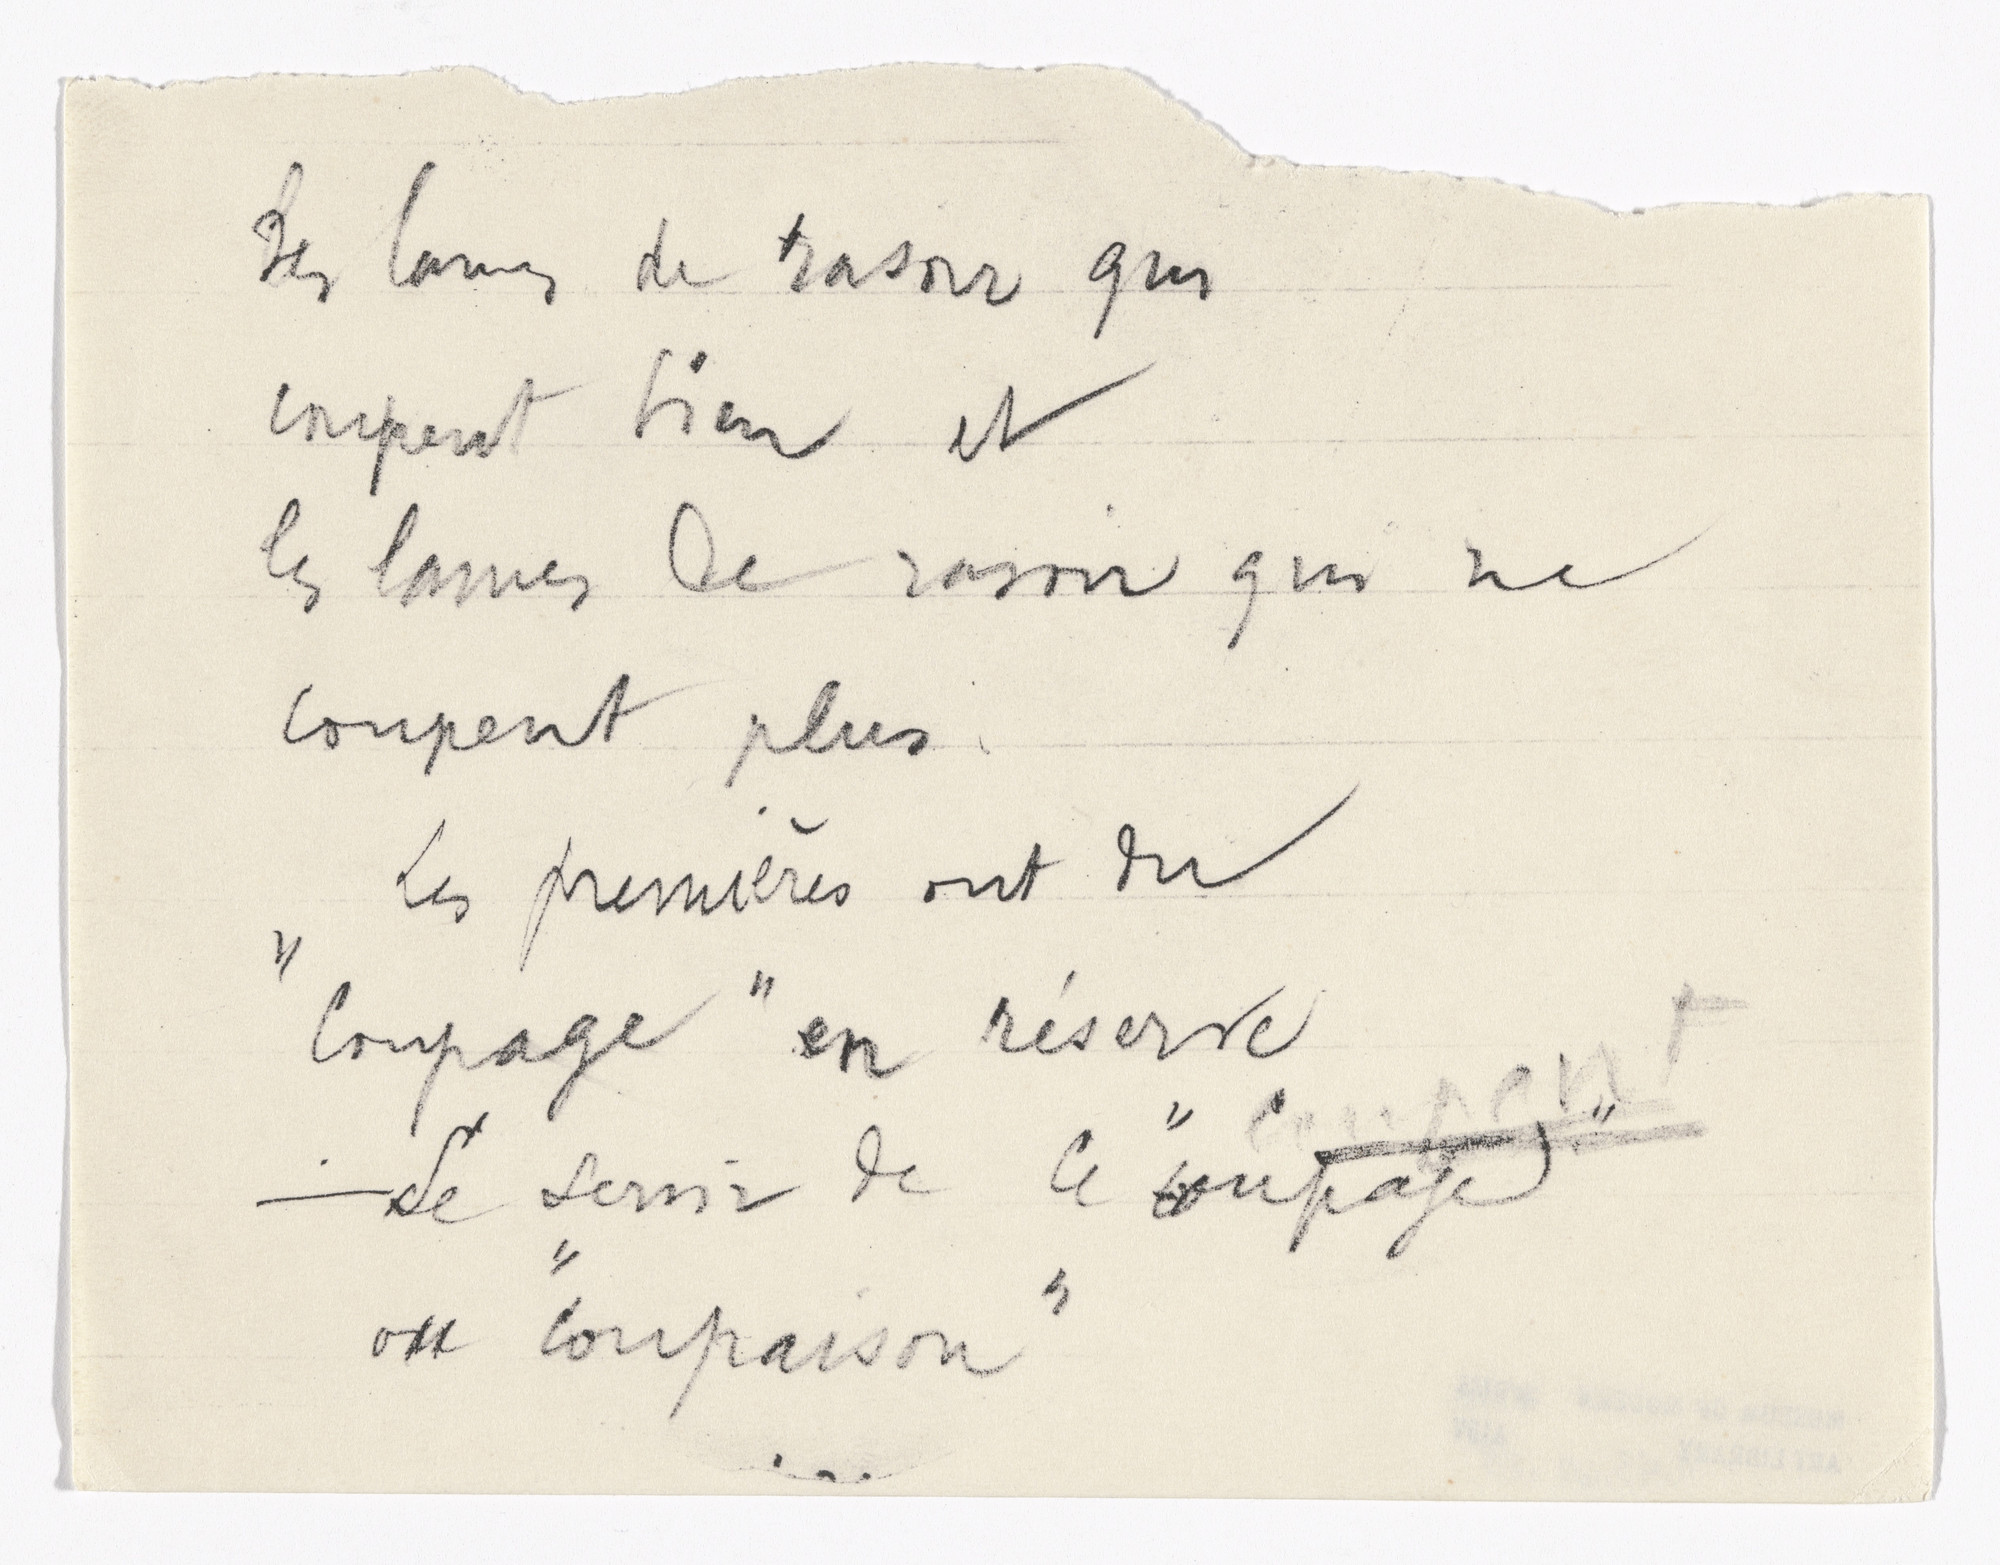 Les lames de rasoir qui
coupent bien et
les lames de rasoir qui ne
coupent plus.
Les premières ont du
"Coupage" en réserve
coupent
— Se servir de ce "coupage"
ou "coupaison"